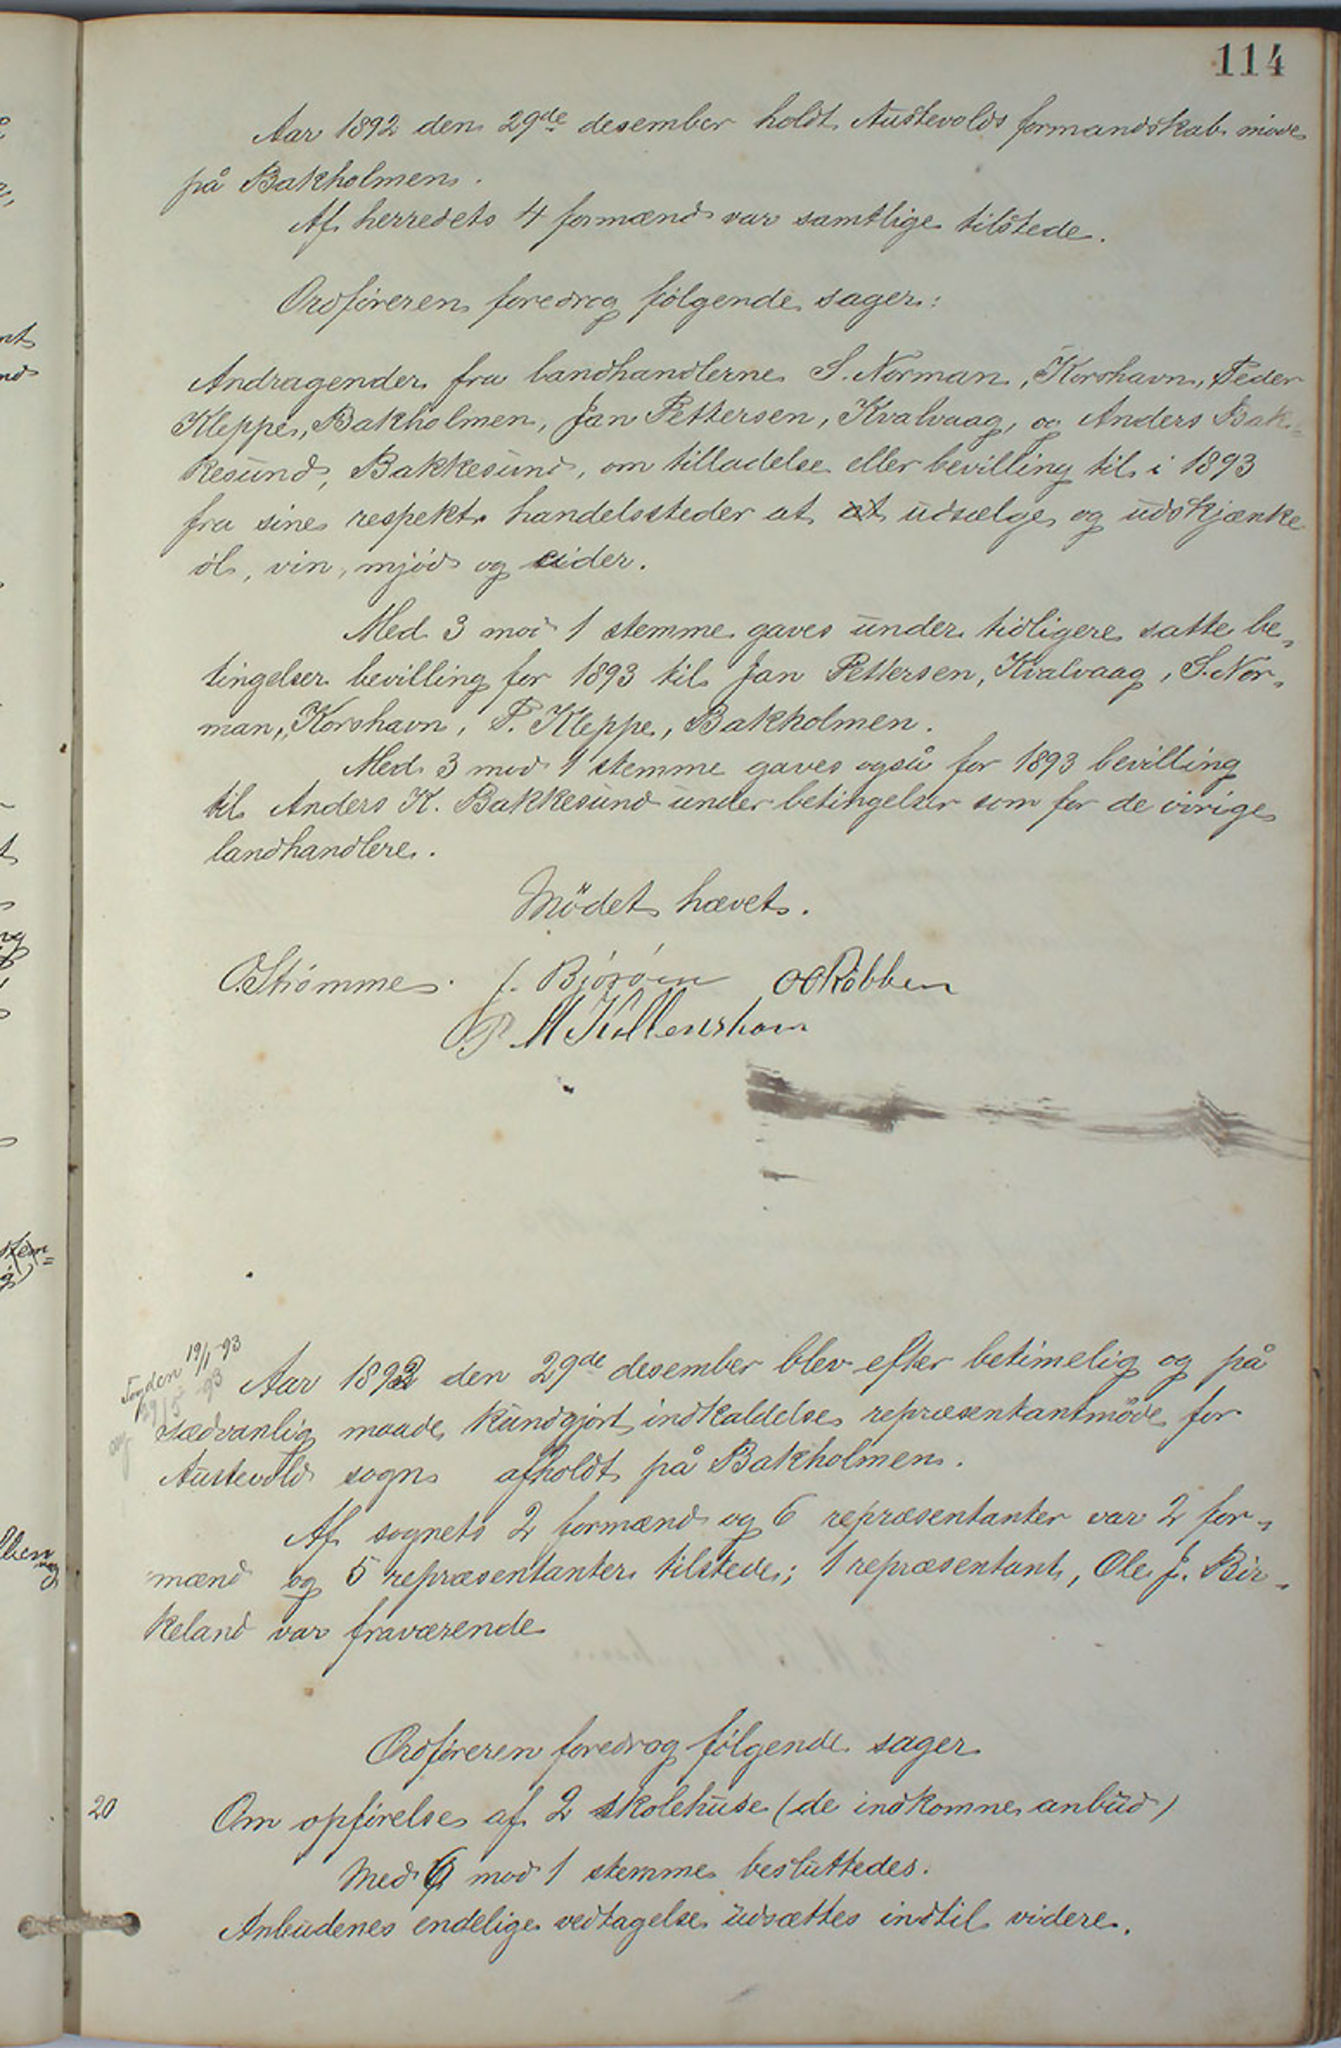 114
Aar 1892 den 29de desember holdt Austevolds formandskab møde
på Bakholmen.
Af herredets 4 formænd var samtlige tilstede.
Ordføreren foredrog følgende sager:
Andragender fra landhandlerne S. Norman, Korshavn, Peder
Kleppe, Bakholmen, Jan Pettersen, Kvalvaag, og Anders Bak-
kesund, Bakkesund, om tilladelse eller bevilling til i 1893
fra sine respekt. handelssteder at at udsælge og udskjænke
øl, vin, mjød og cider.
Med 3 mod 1 stemme gaves under tidligere satte be-
tingelser bevilling for 1893 til Jan Pettersen, Kvalvaag, S. Nor-
man, Korshavn, P. Kleppe, Bakholmen.
Med 3 mod 1 stemme gaves også for 1893 bevilling
til Anders K. Bakkesund under betingelser som for de øvrige
landhandlere.
Mødet hævet.
O. Strømme. J. Bjørøen OORöbben
P. M Kallenshavn
19/1-93
Fogden
29/5 93
Aar 1892 den 29de desember blev efter betimelig og på
sædvanlig maade kundgjort indkaldelse repræsentantmøde for
Austevold sogn afholdt på Bakholmen.
Af sognets 2 formænd og 6 repræsentanter var 2 for-
mænd og 5 repræsentanter tilstede; 1 repræsentant, Ole J. Bir-
keland var fraværende
Ordføreren foredrog følgende sager
20 Om opførelse af 2 skolehuse (de indkomne anbud)
Med 6 mod 1 stemme besluttedes.
Anbudenes endelige vedtagelse udsættes indtil videre.